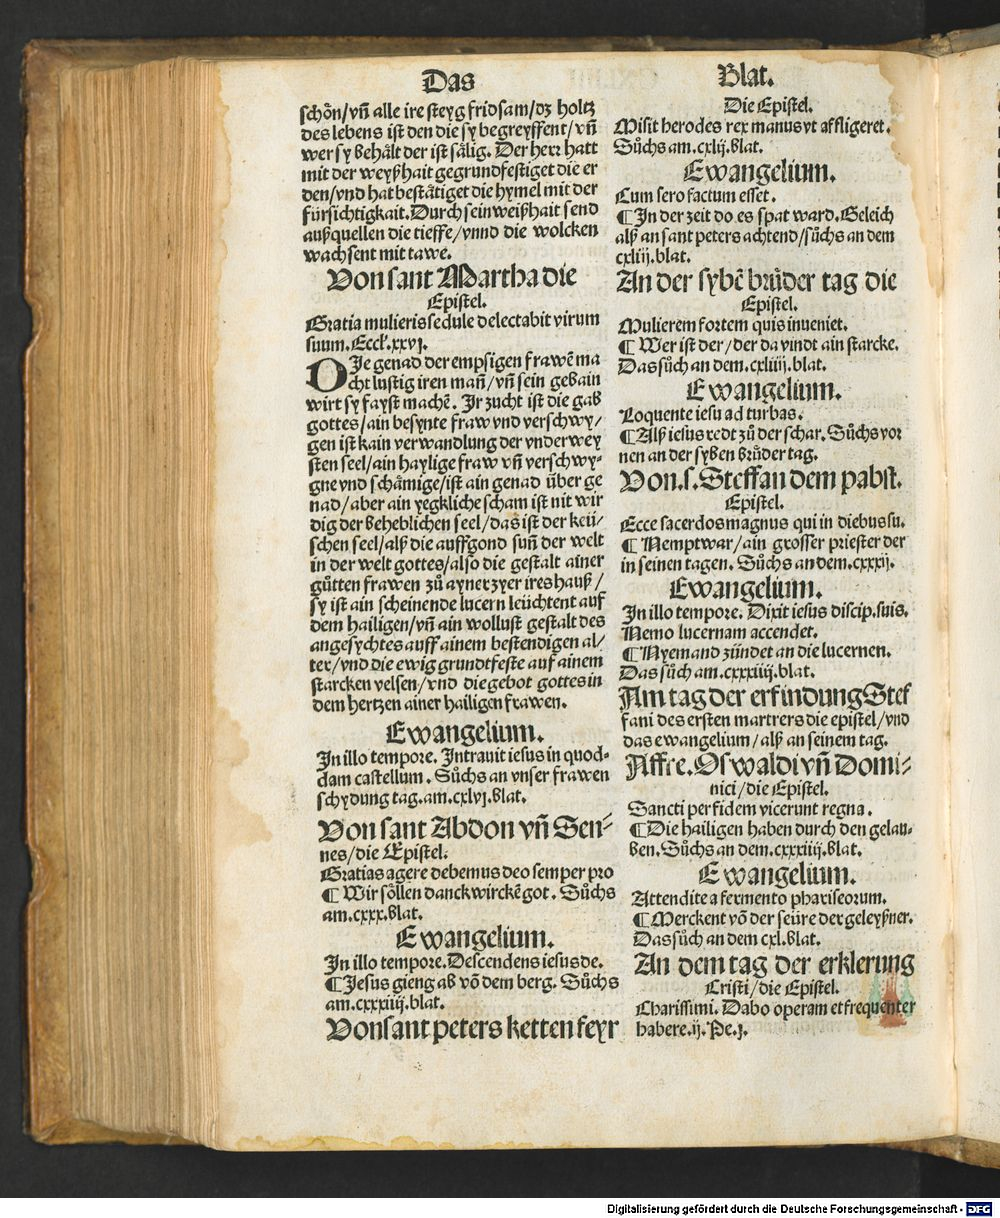 Das
schön/vñ alle ire steyg fridsam/dz holtz
des lebens ist den die sy begreyffent/vñ
wer sy behålt der ist sålig. Der herr hatt
mit der weyßhait gegrundfestiget die er
den/vnd hat beståtiget die hymel mit der
fürsichtigkait. Durch sein weißhait send
außquellen die tieffe/vnnd die wolcken
wachsent mit tawe.
Von sant Martha die
Epistel.
Gratia mulieris sedule delectabit virum
suum. Eccl'. xxvj.
DJe genad der empsigen frawē ma
cht lustig iren mañ/vñ sein gebain
wirt sy fayst machē. Jr zucht ist die gab
gottes/ain besynte fraw vnd verschwy/
gen ist kain verwandlung der vnderwey
sten seel/ain haylige fraw vñ verschwy-
gne vnd schåmige/ist ain genad über ge
nad/aber ain yegkliche scham ist nit wir
dig der beheblichen seel/das ist der keü/
schen seel/alß die auffgond suñ der welt
in der welt gottes/also die gestalt ainer
gůtten frawen zů ayner zyer ires hauß/
sy ist ain scheinende lucern leüchtent auf
dem hailigen/vñ ain wollust gestalt des
angesychtes auff ainem bestendigen al/
ter/vnd die ewig grundtfeste auf ainem
starcken velsen/vnd die gebot gottes in
dem hertzen ainer hailigen frawen.
Ewangelium.
Jn illo tempore. Jntrauit iesus in quod-
dam castellum. Sůchs an vnser frawen
schydung tag. am. cxlvj. blat.
Von sant Abdon vñ Sen-
nes/die Epistel.
Gratias agere debemus deo semper pro
¶ Wir söllen danck wirckē got. Sůchs
am. cxxx. blat.
Ewangelium.
Jn illo tempore. Descendens iesus de.
¶ Jesus gieng ab vō dem berg. Sůchs
am. cxxxiiij. blat.
Von sant peters ketten feyr
Blat.
Die Epistel.
Misit herodes rex manus vt affligeret.
Sůchs am. cxlij. blat.
Ewangelium.
Cum sero factum esset.
¶ Jn der zeit do es spat ward. Geleich
alß an sant peters achtend/sůchs an dem
cxliij. blat.
An der sybē brůder tag die
Epistel.
Mulierem fortem quis inueniet.
¶ Wer ist der/der da vindt ain starcke.
Das sůch an dem. cxliiij. blat.
Ewangelium.
Loquente iesu ad turbas.
¶ Alß iesus redt zů der schar. Sůchs vor
nen an der syben brůder tag.
Von. s. Steffan dem pabst.
Epistel.
Ecce sacerdos magnus qui in diebus su.
¶ Nempt war/ain grosser priester der
in seinen tagen. Sůchs an dem. cxxxij.
Ewangelium.
Jn illo tempore. Dixit iesus discip. suis.
Nemo lucernam accendet.
¶ Nyemand zündet an die lucernen.
Das sůch am. cxxxiiij. blat.
Am tag der erfindung Stef
fani des ersten martrers die epistel/vnd
das ewangelium/alß an seinem tag.
Affre. Oswaldi vñ Domi-
nici/die Epistel.
Sancti per fidem vicerunt regna.
¶ Die hailigen haben durch den gelau-
ben. Sůchs an dem. cxxxiiij. blat.
Ewangelium.
Attendite a fermento phariseorum.
¶ Merckent vō der seüre der geleyßner.
Das sůch an dem cxl. blat.
An dem tag der erklerung
Cristi/die Epistel.
Charissimi. Dabo operam et frequenter
habere. ij. Pe. j.
Digitalisierung gefördert durch die Deutsche Forschungsgemeinschaft - DFG